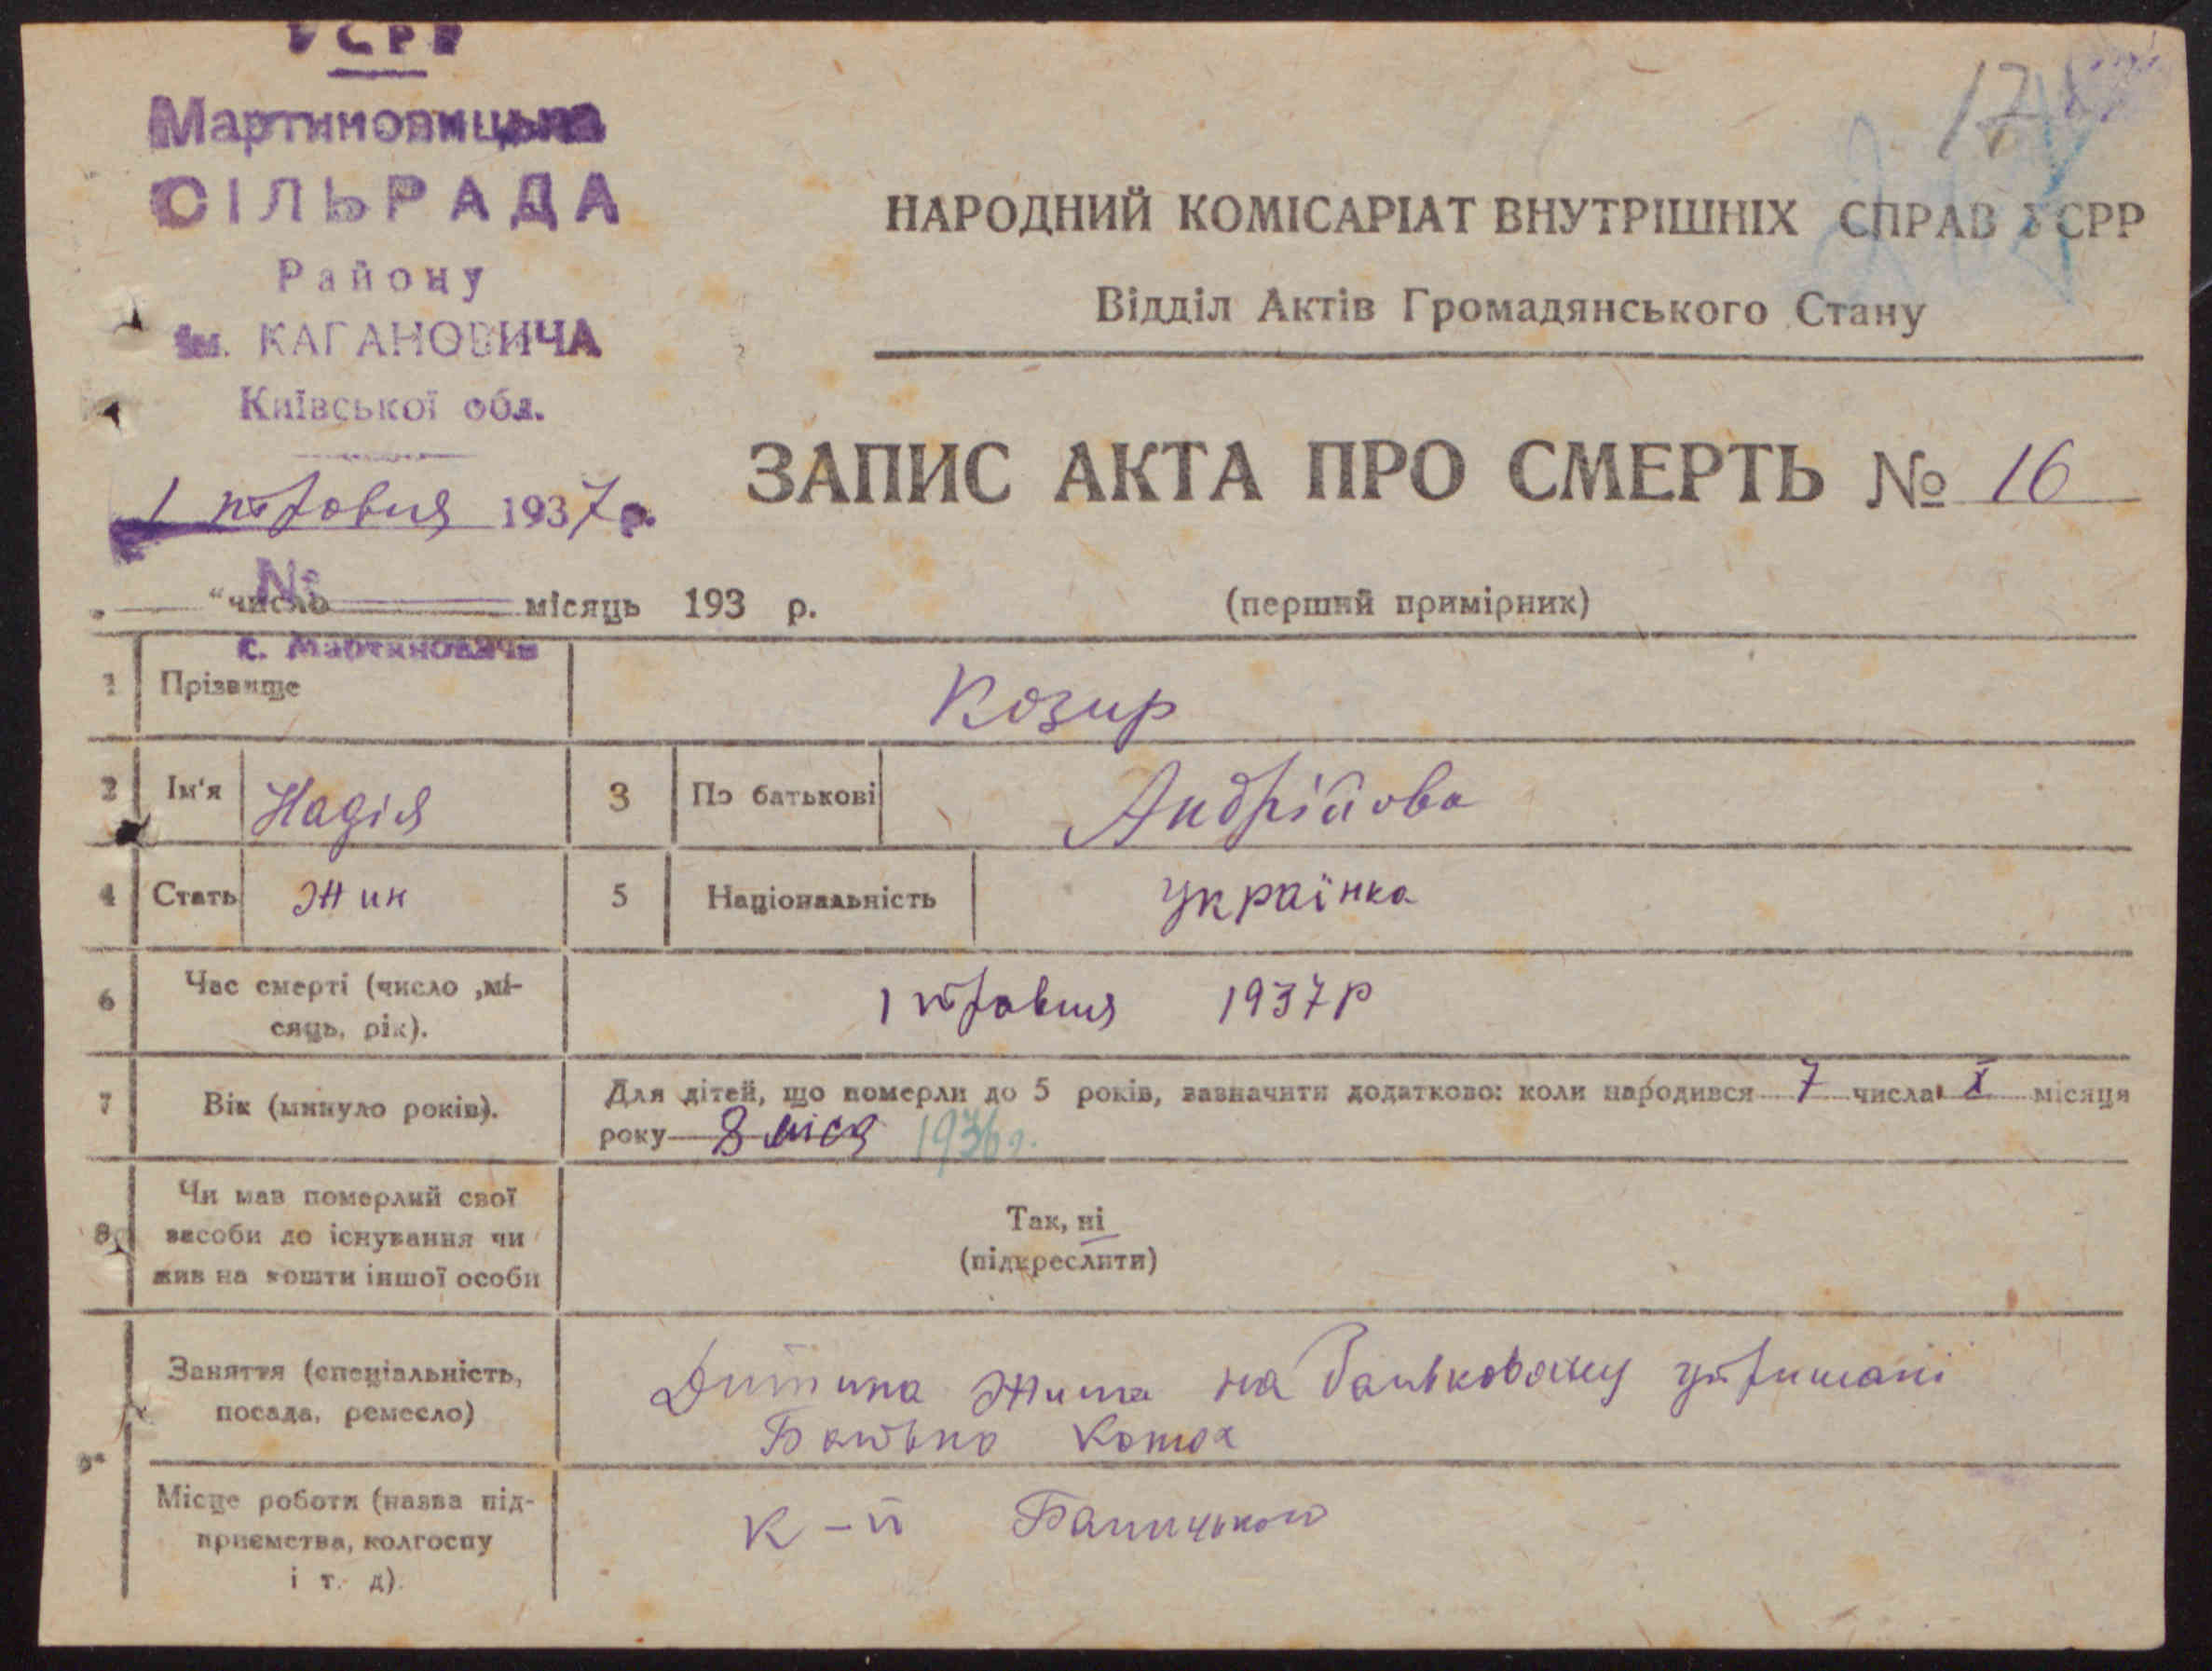 УСРР
Мартиновицька
СІЛЬРАДА
Району
ім. КАГАНОВИЧА
Київської обл.
1937 р.
№
с. Мартиновичі
НАРОДНИЙ КОМІСАРІАТ ВНУТРІШНІХ СПРАВ УСРР
Відділ Актів Громадянського Стану
ЗАПИС АКТА ПРО СМЕРТЬ № 16
„ “ число місяць 193 р.
(перший примірник)
1 Прізвище Козир
2 Ім'я Надія 3 По батькові Андрійова
4 Стать Жин 5 Національність Українка
6 Час смерті (число ,мі-
сяць, рік).
1 1937р
7 Вік (минуло років).
Для дітей, що померли до 5 років, зазначити додатково: коли народився 7 числа X місяця
року 8 міся 1936 р.
8 Чи мав померлий свої
засоби до існування чи
жив на кошти іншої особи
Так, ні
(підкреслити)
9 Заняття (спеціальність,
посада, ремесло)
Дитина Жила на батьковому утримані
Батько
Місце роботи (назва під-
приємства, колгоспу
і т. д).
к-п